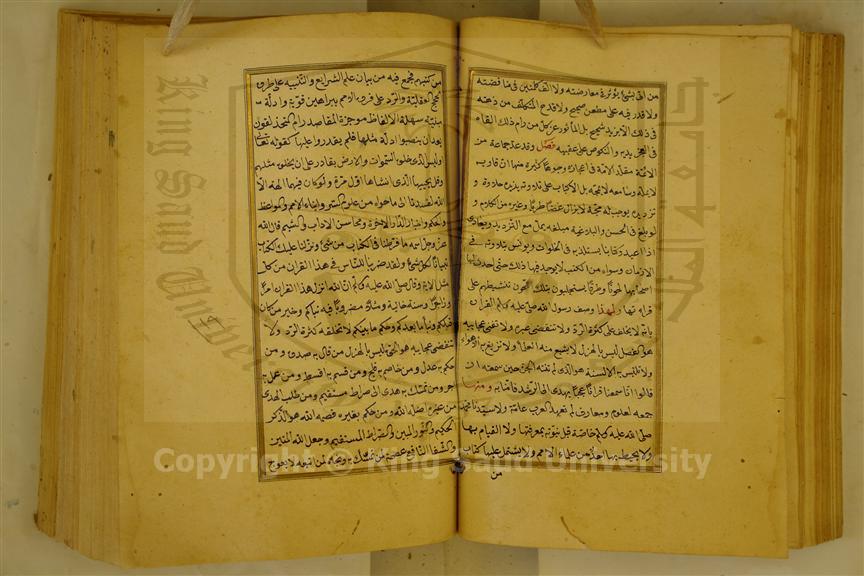 من اتى بشئ يؤثر فى معارضته ولا الف كلمتين فى مناقضته
ولا قدر فيه على مطعن صحيح ولا قدح المتكلف من ذهنه
فى ذلك الا بزند شحيح بل المأثور عن كل من رام ذلك القاه
فى العجز بيديه والنكوص على عقبيه فصل وقد عد جماعة من
الائمة مقلد الامة فى اعجازه وجوها كثيرة منها ان قاريه
لا يمله وسامعه لا يمجه بل الاكباب على تلاوته يزيده حلاوة و
ترديده يوجب له محبة لا يزال غضا طريا وغيره من الكلام و
لو بلغ فى الحسن والبلاغة مبلغه يمل مع الترديد ويعادى
اذا اعيد وكتابنا يستلذ به فى الخلوات ويونس بتلاوته فى
الازمات وسواه من الكتب لا يوجد فيها ذلك حتى احدث لها
اصحابها لحونا وطرقا يستجلبون بتلك اللحون تنشيطهم على
قراءتها ولهذا وصف رسول الله صلى الله عليه وسلم القران
بانه لا يخلق على كثرة الرد ولا تنقضى عبره ولا تفنى عجايبه
هو الفصل ليس بالهزل لا يشبع منه العلماء ولا تزيغ به الاهواء
ولا تلتبس به الالسنة هو الذى لم تنته الجن حين سمعته ان
قالوا انا سمعنا قرانا عجبا يهدى الى الرشد فامنا به ومنها
جمعه لعلوم ومعارف لم تعهد العرب عامة ولا سيدنا محمد
صلى الله عليه وسلم خاصة قبل نبوته بمعرفتها ولا القيام بها
ولا يحيط بها احد من علماء الامم ولا يشتمل عليها كتاب
من
من كتبهم فجمع فيه من بيان علم الشرايع والتنبيه على طرق
الحجج العقلية والرد على فرق الامم ببراهين قوية وادلة
بينة سهلة الالفاظ موجزة المقاصد رام المتحذلقون
بعد ان ينصبوا ادلة مثلها فلم يقدروا عليها كقوله تعالى
اوليس الذى خلق السموات والارض بقادر على ان يخلق مثلهم
وقل يحييها الذى انشاها اول مرة ولو كان فيهما الهة الا
الله لفسدتا الى ما حواه من علوم السير وانباء الامم والمواعظ
والحكم واخبار الدار الاخرة ومحاسن الاداب والشيم قال الله
عز وجل اسمه ما فرطنا فى الكتاب من شئ ونزلنا عليك الكتاب
تبيانا لكل شئ ولقد ضربنا للناس فى هذا القران من كل
مثل الاية وقال صلى الله عليه وسلم ان الله انزل هذا القران امرا
وزاجرا وسنة خالية ومثلا مضروبا فيه نباكم وخبر من كان
قبلكم ونبا ما بعدكم وحكم ما بينكم لا تخلقه كثرة الرد ولا
تنقضى عجايبه هو الحق ليس بالهزل من قال به صدق ومن
حكم به عدل ومن خاصم به فلج ومن قسم به اقسط ومن عمل به
اجر ومن تمسك به هدى الى صراط مستقيم ومن طلب الهدى
من غيره اضله الله ومن حكم بغيره قصمه الله هو الذكر
الحكيم والنور المبين والصراط المستقيم وحبل الله المتين
والشفا النافع عصمة لمن تمسك به ونجاة لمن اتبعه لا يعوج
Copyright © King Saud University
King Saud University
جامعة الملك